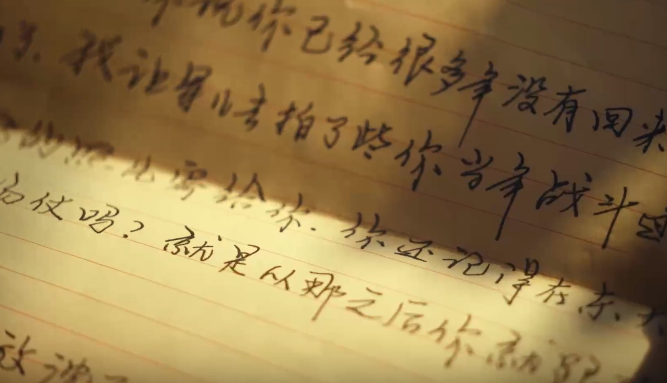 说你已经很多年没有回来
我让导儿去拍了些你当年战斗
的照片寄给你.你还记得在东
仗吗?就是从那之后你就